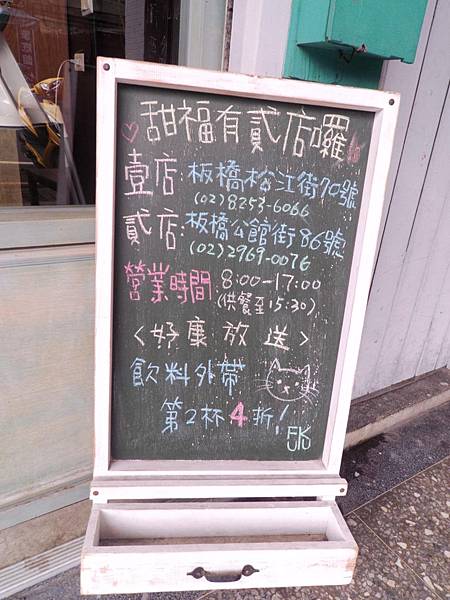 甜福有貳店囉
壹店:板橋松江街70號
(02)8253-6066
貳店:板橋公館街86號
(02)2969-0076
營業時間 8:00-17:00
(供餐至15:30)
<好康放送>
飲料外帶
第2杯4折!